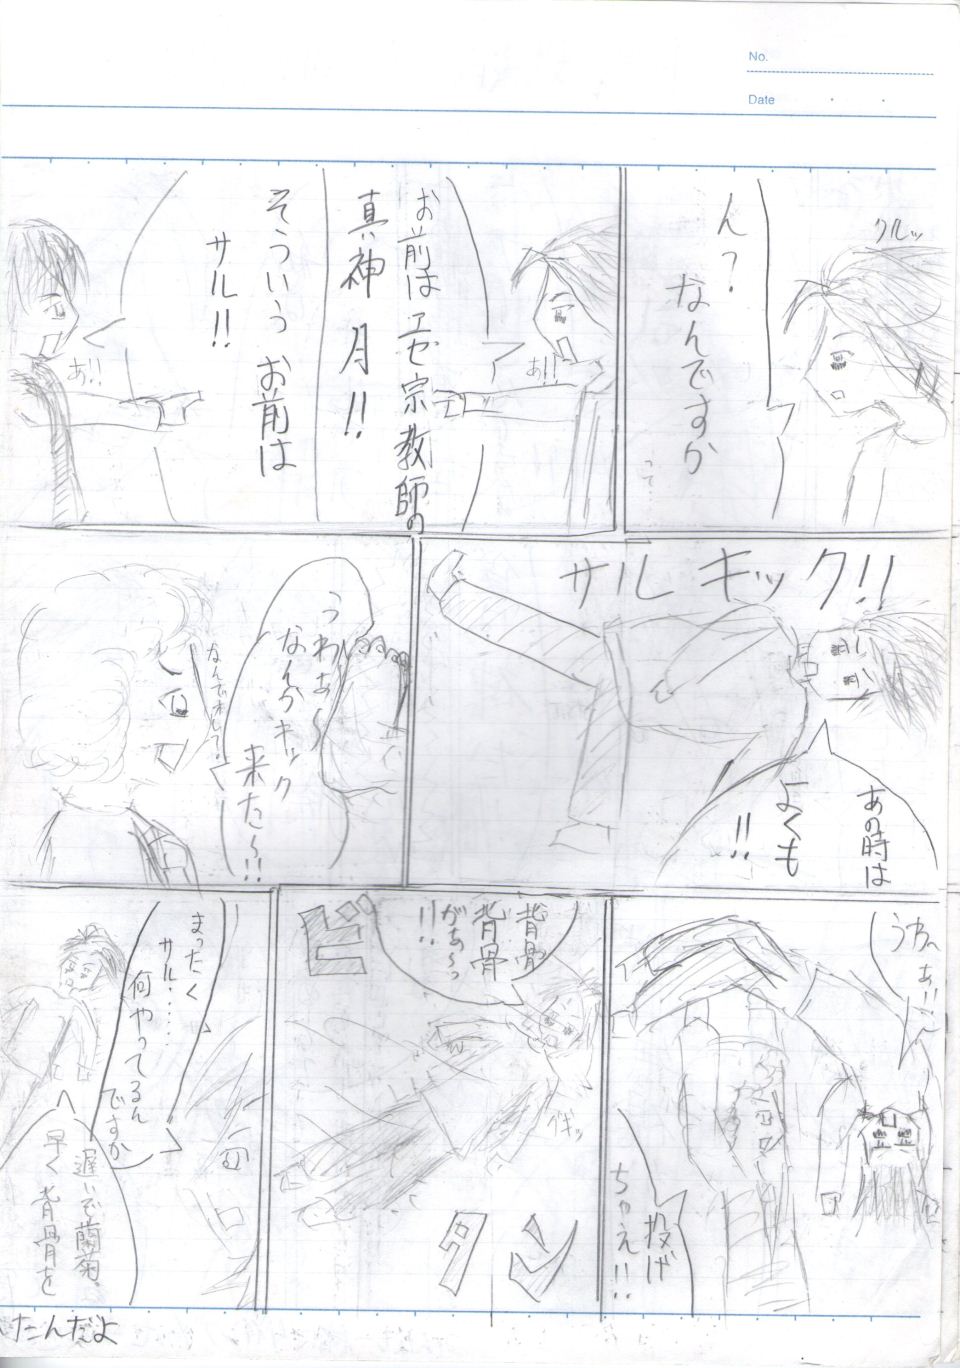 No.
Date
クルッ
ん？
なんですか
って…
お前はエセ宗教師の
真神 月！！
あ！！
そういうお前は
サル！！
あ！！
サルキック！！
あの時は
よくも
！！
うわぁ〜
なんかキック
来た〜！！
なんでオレ…？
うわぁ！！
投げ
ちゃえ！！
背骨
背骨
がぁ〜っ
！！
ビ
タン
まったく
サル……
何やってるん
ですか
遅いで蘭菊、
早く背骨を
たんだよ